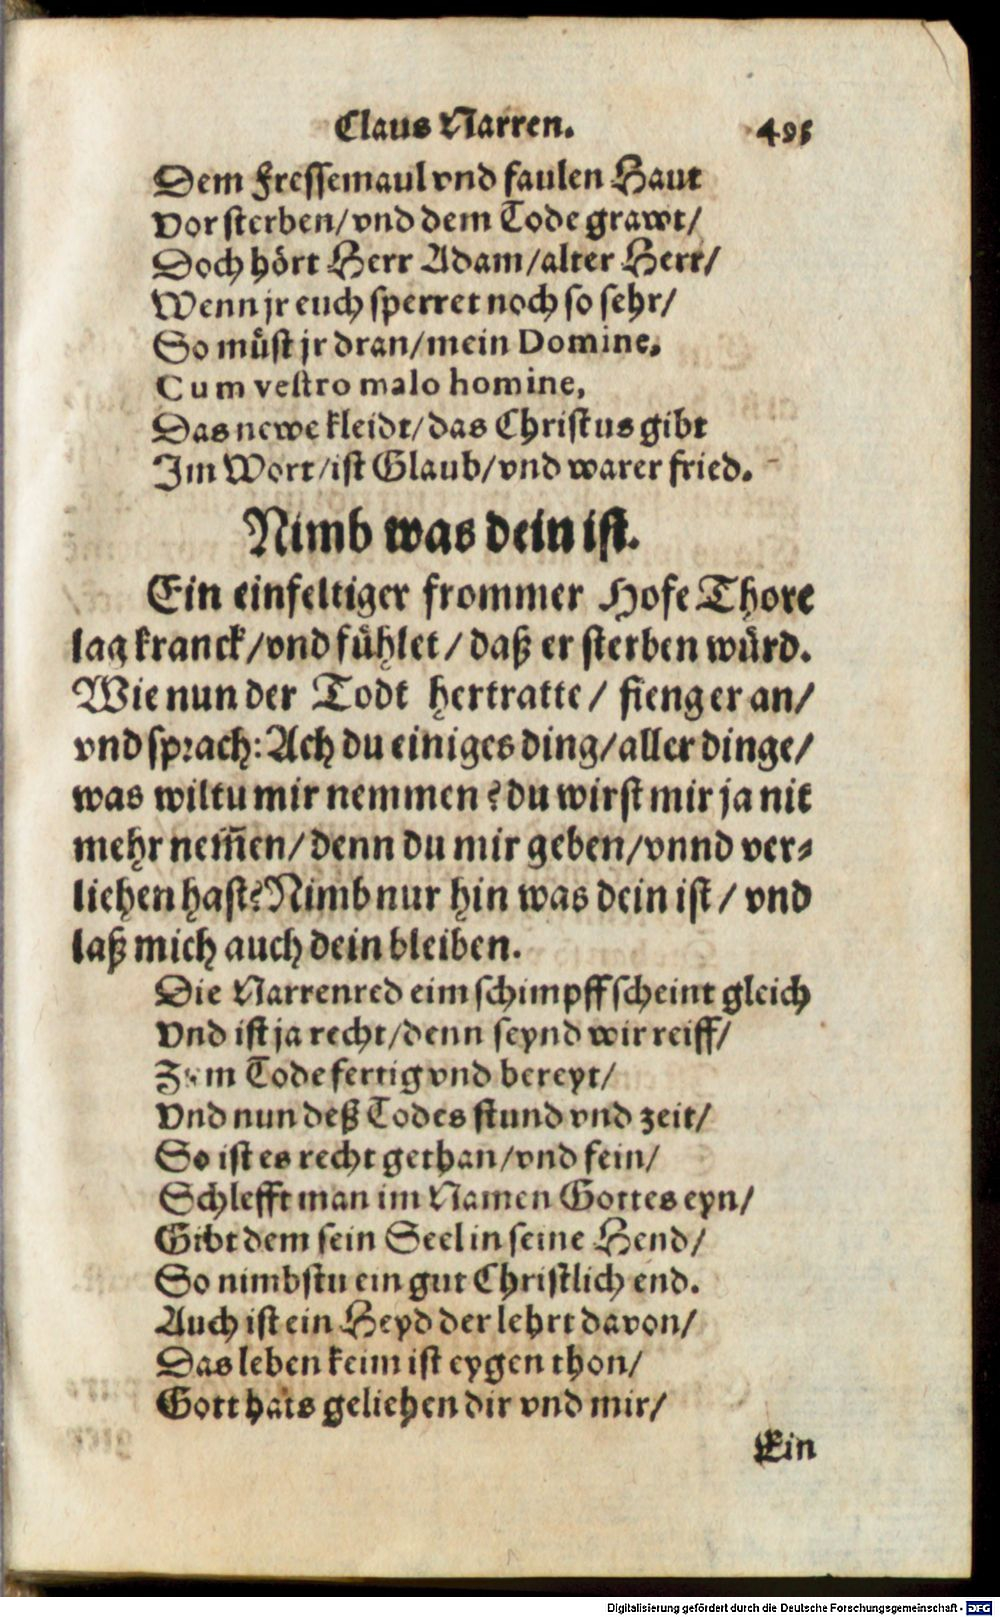 Claus Narren. 495
Dem Fressemaul vnd faulen Haut
Vor sterben/vnd dem Tode grawt/
Doch hört Herr Adam/alter Herr/
Wenn jr euch sperret noch so sehr/
So müst jr dran/mein Domine,
Cum vestro malo homine,
Das newe kleidt/das Christus gibt
Im Wort/ist Glaub/vnd warer fried.
Nimb was dein ist.
Ein einfeltiger frommer Hofe Thore
lag kranck/vnd fühlet/daß er sterben würd.
Wie nun der Todt hertratte/ fieng er an/
vnd sprach: Ach du einiges ding/aller dinge/
was wiltu mir nemmen? du wirst mir ja nit
mehr nem̃en/denn du mir geben/vnnd ver-
liehen hast? Nimb nur hin was dein ist/ vnd
laß mich auch dein bleiben.
Die Narrenred eim schimpff scheint gleich
Vnd ist ja recht/denn seynd wir reiff/
Zum Tode fertig vnd bereyt/
Vnd nun deß Todes stund vnd zeit/
So ist es recht gethan/vnd fein/
Schlefft man im Namen Gottes eyn/
Gibt dem sein Seel in seine Hend/
So nimbstu ein gut Christlich end.
Auch ist ein Heyd der lehrt davon/
Das leben keim ist eygen thon/
Gott hats geliehen dir vnd mir/
Ein
Digitalisierung gefördert durch die Deutsche Forschungsgemeinschaft - DFG